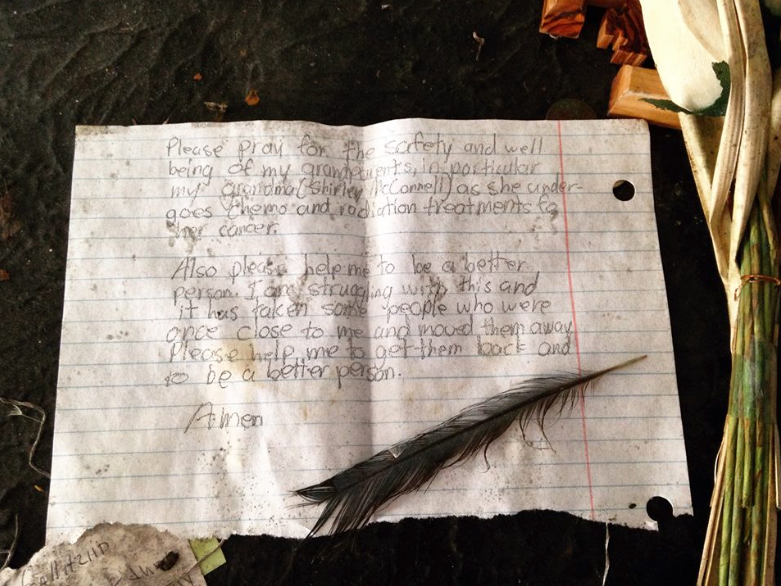 Please pray for the safety and well
being of my grandparents, in particular
my grandma (Shirley McConnell) as she under-
goes chemo and radiation treatments fo
her cancer.
Also please help me to be a better
person. I am struggling with this and
it has taken some people who were
once close to me and moved them away
Please help me to get them back and
to be a better person.
Amen
Gallitzin